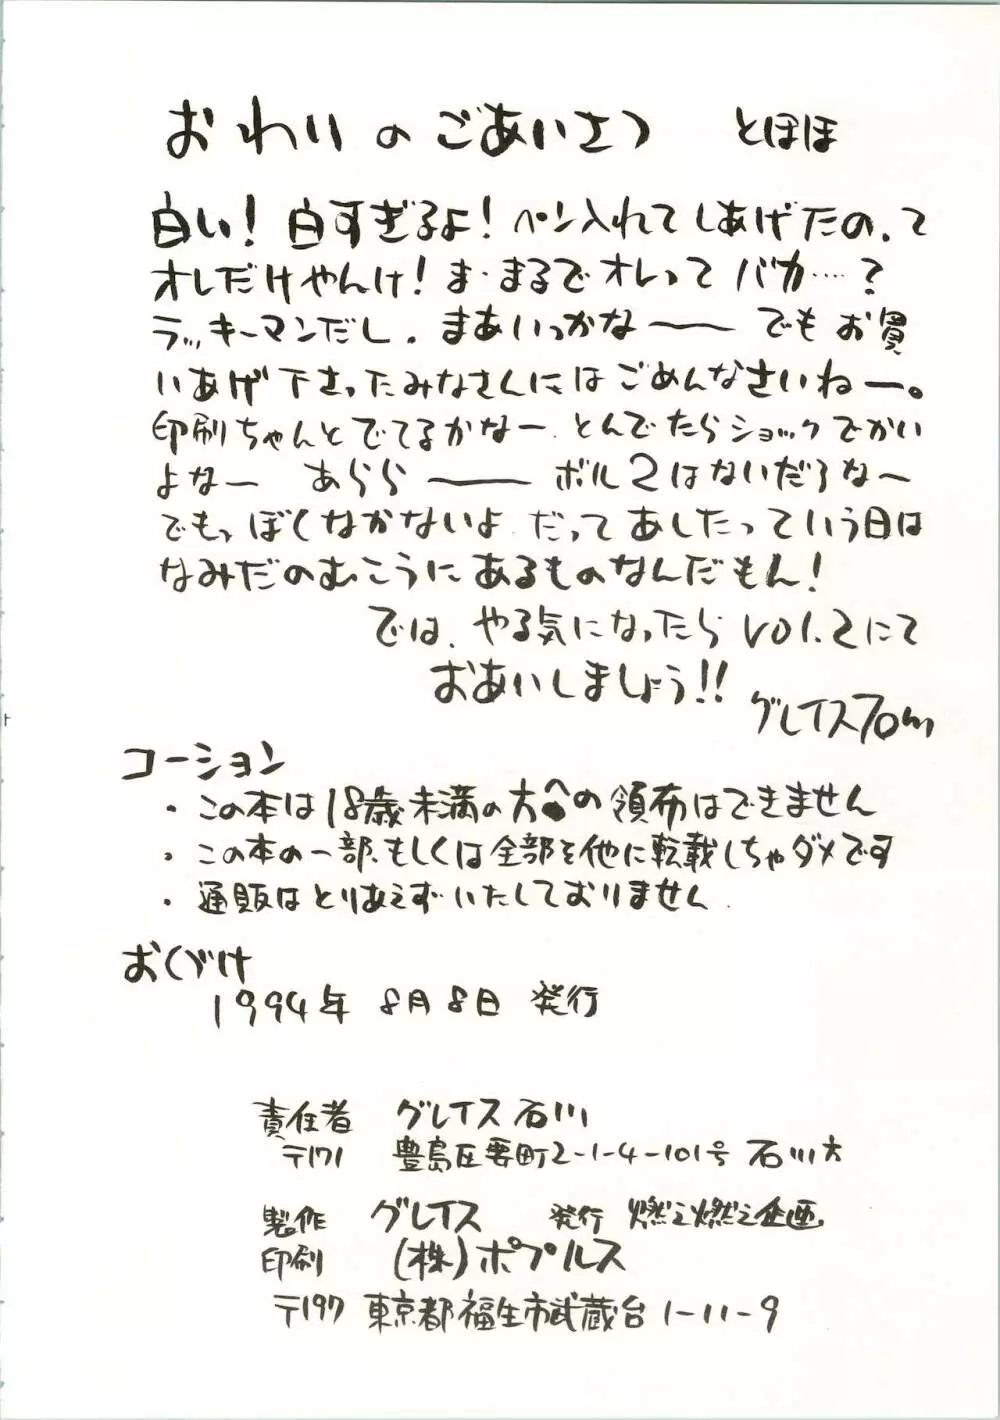 おわりのごあいさつ　とほほ
白い！白すぎるよ！ペン入れてしあげたの、て
オレだけやんけ！ま・まるでオレってバカ……？
ラッキーマンだし、まあいっかな―― でもお買
いあげ下さったみなさんにはごめんなさいねー。
印刷ちゃんとでてるかなー、とんでたらショックでかい
よなー　あらら――　ボル2はないだろな～
でもっぼくなかないよ、だってあしたっていう日は
なみだのむこうにあるものなんだもん！
では、やる気になったらvol.2にて
おあいしましょう!!
グレイスTom
コーション
・この本は18歳未満の大の領布はできません
・この本の一部、もしくは全部を他に転載しちゃダメです
・通販はとりあえずいたしておりません
おくづけ
1994年 8月8日 発行
責任者　グレイス石川
〒171　豊島区要町2-1-4-101号 石川方
製作　グレイス　発行 燃え燃え企画
印刷　(株)ポプルス
〒197 東京都福生市武蔵台1-11-9